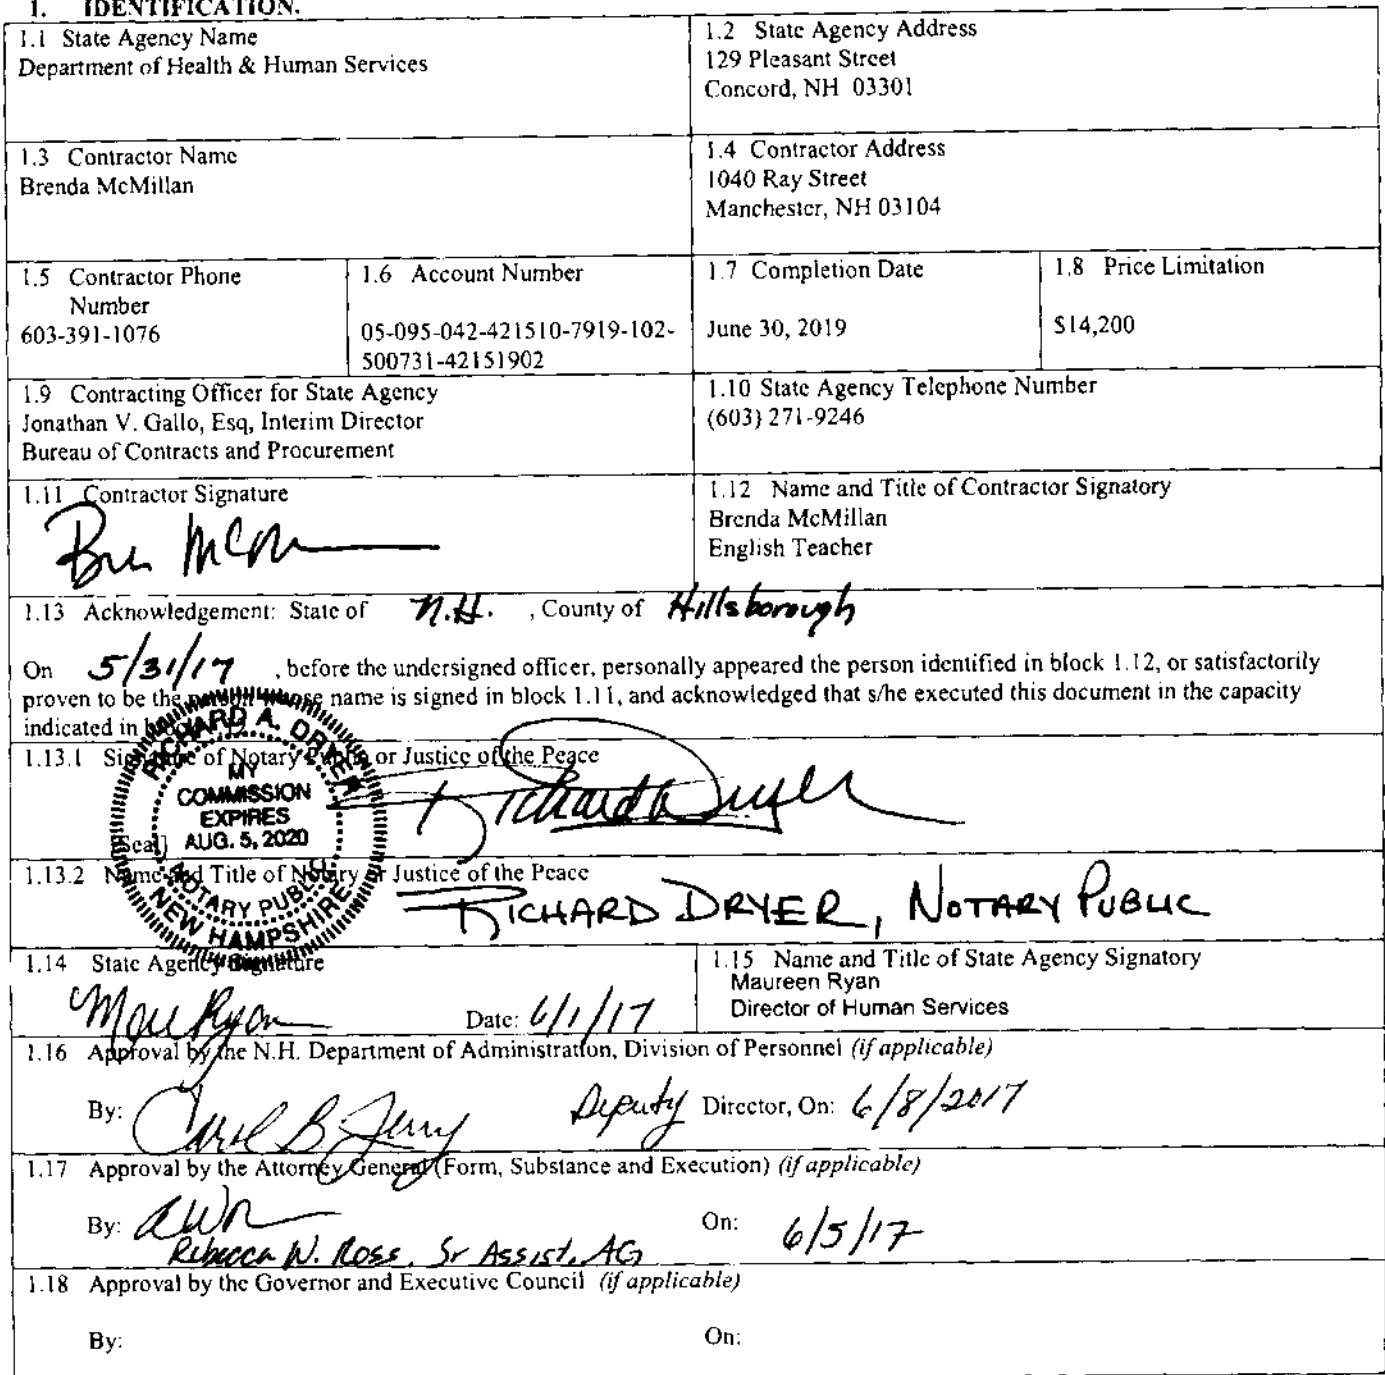 1. IDENTIFICATION.
1.1 State Agency Name
Department of Health & Human Services
1.2 State Agency Address
129 Pleasant Street
Concord, NH 03301
1.3 Contractor Name
Brenda McMillan
1.4 Contractor Address
1040 Ray Street
Manchester, NH 03104
1.5 Contractor Phone
Number
603-391-1076
1.6 Account Number
05-095-042-421510-7919-102-
500731-42151902
1.7 Completion Date
June 30, 2019
1.8 Price Limitation
$14,200
1.9 Contracting Officer for State Agency
Jonathan V. Gallo, Esq, Interim Director
Bureau of Contracts and Procurement
1.10 State Agency Telephone Number
(603) 271-9246
1.11 Contractor Signature
1.12 Name and Title of Contractor Signatory
Brenda McMillan
English Teacher
1.13 Acknowledgement: State of N.H. , County of Hillsborough
On 5/31/17 , before the undersigned officer, personally appeared the person identified in block 1.12, or satisfactorily
proven to be the person whose name is signed in block 1.11, and acknowledged that s/he executed this document in the capacity
indicated in
1.13.1 Signature of Notary Public or Justice of the Peace
Richard A Dryer
[Seal]
RICHARD A. DRYER
MY
COMMISSION
EXPIRES
AUG. 5, 2020
NOTARY PUBLIC
NEW HAMPSHIRE
1.13.2 Name and Title of Notary or Justice of the Peace
RICHARD DRYER, NOTARY PUBLIC
1.14 State Agency Signature
Date: 6/1/17
1.15 Name and Title of State Agency Signatory
Maureen Ryan
Director of Human Services
1.16 Approval by the N.H. Department of Administration, Division of Personnel (if applicable)
By: Deputy Director, On: 6/8/2017
1.17 Approval by the Attorney General (Form, Substance and Execution) (if applicable)
By: On: 6/5/17
Rebecca W. Ross, Sr Assist. AG
1.18 Approval by the Governor and Executive Council (if applicable)
By: On: